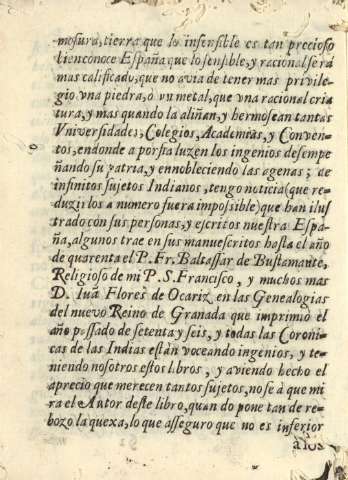 mosura, tierra que lo insensible es tan precioso
bienconoce España que lo sensible, y racional será
mas calificado, que no avia de tener mas privile-
gio vna piedra, ò vn metal, que vna racional cria
tura, y mas quando la aliñan, y hermosean tantas
Vniversidades, Colegios, Academias, y Conven-
tos, endonde a porfia luzen los ingenios desempe
ñando su patria, y ennobleciendo las agenas; de
infinitos sujetos Indianos, tengo noticia (que re-
duzirlos a numero fuera impossible) que han ilus
trado con sus personas, y escritos nuestra Espa-
ña, algunos trae en sus manuscritos hasta el año
de quarenta el P. Fr. Baltassar de Bustamante,
Religioso de mi P. S. Francisco, y muchos mas
D. Iuã Flores de Ocariz, en las Genealogias
del nuevo Reino de Granada que imprimiò el
año passado de setenta y seis, y todas las Coroni-
cas de las Indias estàn voceando ingenios, y te-
niendo nosotros estos libros, y aviendo hecho el
aprecio que merecen tantos sujetos, no se à que mi
ra el Autor deste libro, quan do pone tan de re-
bozo la quexa, lo que asseguro que no es inferior
a los